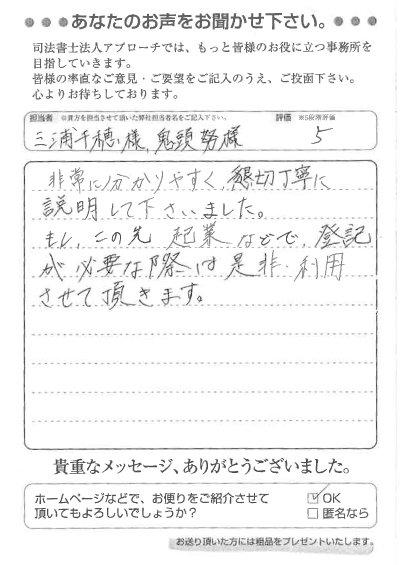 あなたのお声をお聞かせ下さい。
司法書士法人アプローチでは、もっと皆様のお役に立つ事務所を
目指していきます。
皆様の率直なご意見・ご要望をご記入のうえ、ご投函下さい。
心よりお待ちしております。
担当者 ※貴方を担当させて頂いた弊社担当者名をご記入下さい。 評価 ※5段階評価
三浦千穂様、鬼頭努様 5
非常に分かりやすく、懇切丁寧に
説明して下さいました。
もし、この先 起業などで、登記
が必要な際は是非利用
させて頂きます。
貴重なメッセージ、ありがとうございました。
ホームページなどで、お便りをご紹介させて
頂いてもよろしいでしょうか？
☑ OK
□ 匿名なら
お送り頂いた方には粗品をプレゼントいたします。